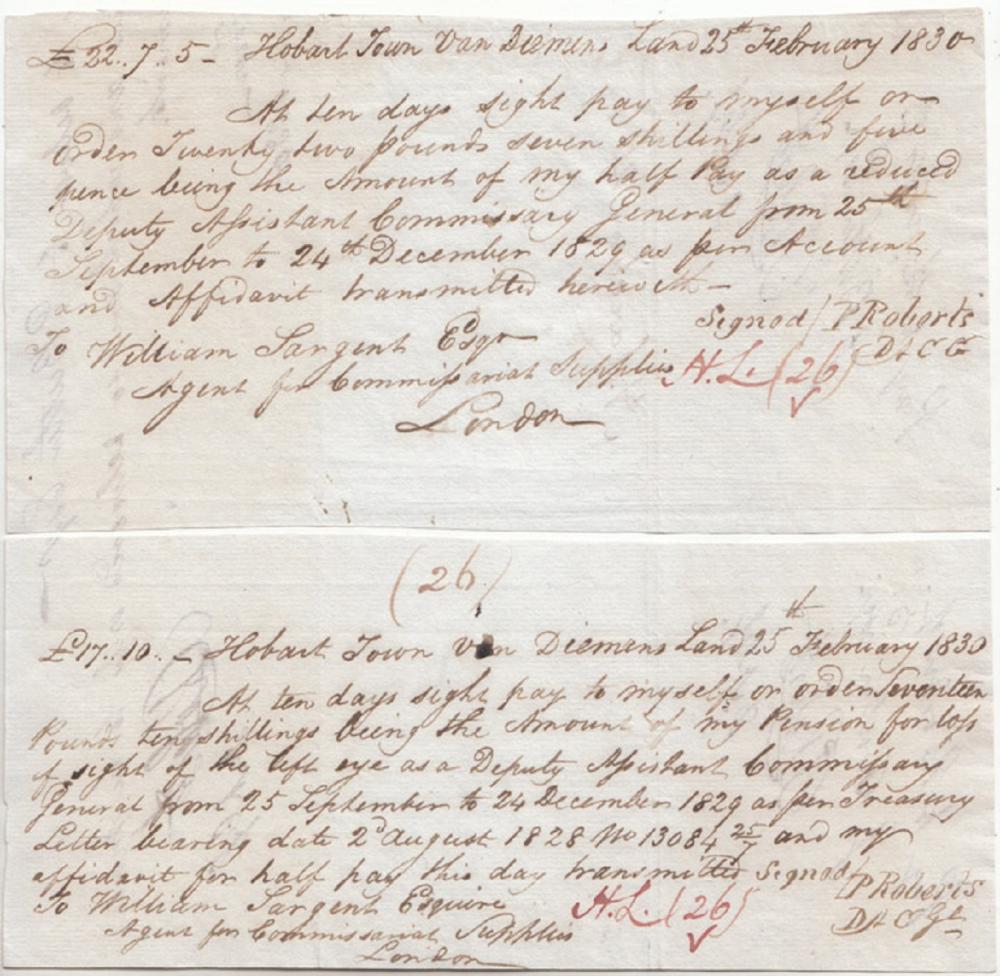 £22..7..5_ Hobart Town Van Diemens Land 25th February 1830
At ten days sight pay to myself or
order Twenty two pounds seven shillings and five
pence being the Amount of my half Pay as a reduced
Deputy Assistant Commissary General from 25th
September to 24th December 1829 as per Account
and Affidavit transmitted herewith_
Signed / P Roberts
DACG
To William Sargent Esqr
Agent for Commissariat Supplies H.L. (26)
London
(26)
£17..10.._ Hobart Town Van Diemens Land 25th February 1830
At ten days sight pay to myself or order Seventeen
Pounds ten shillings being the Amount of my Pension for loss
of sight of the left eye as a Deputy Assistant Commissary
General from 25 September to 24 December 1829 as per Treasury
Letter bearing date 2d August 1828 No 13084 25/7 and my
affidavit for half pay this day transmitted Signed / P Roberts
To William Sargent Esquire H.L. (26) DACGl
Agent for Commissariat Supplies
London